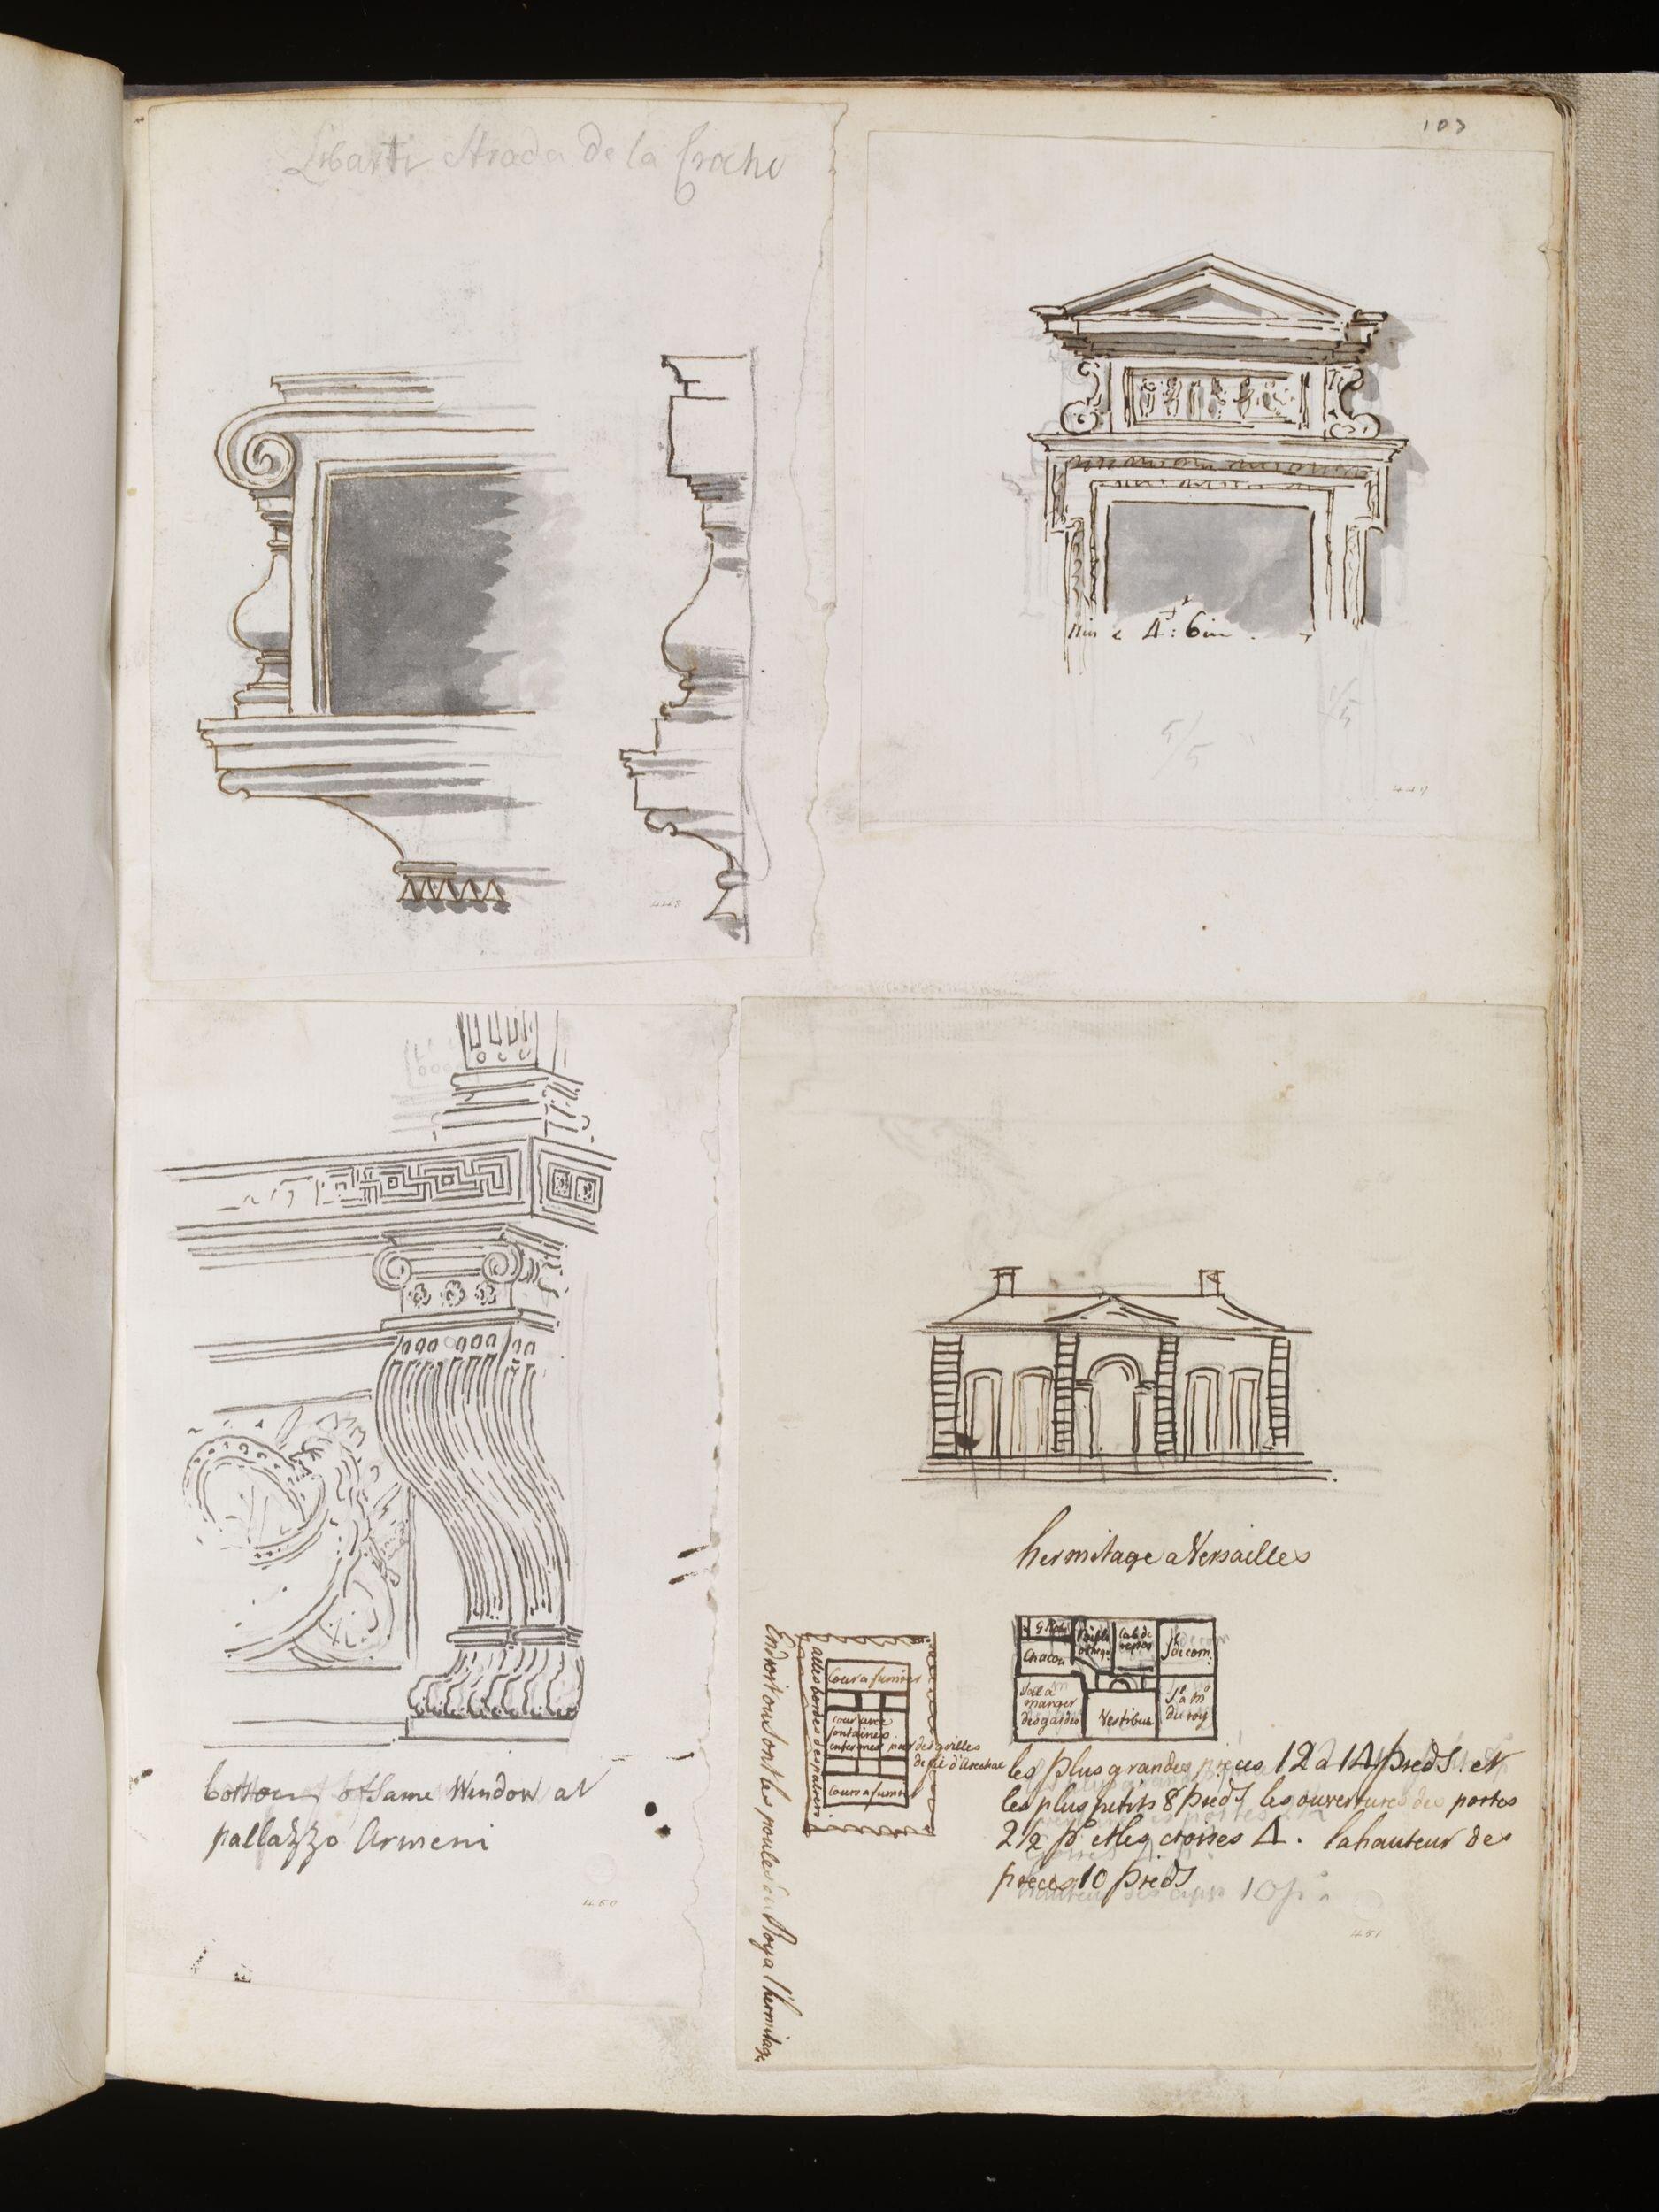 107
Libarti Strada de la Croche
11in 4 : 6in
5/5
5/5
449
448
bottom of Same Window at
pallazzo Armeni
450
hermitage a Versailles
G Rob
Chacou
Cab de
repos
de com.
Sal a
manger
des gardes
Vestibue
a m
du roy
les plus grandes pieces 12 a 14 pieds et
les plus petits 8 pieds les ouvertures des portes
2 1/2 p et les croises 4. la hauteur des
pieces 10 pieds
10 p
451
Cour a fumier
cour avec
fontaines
enfermes par des grilles
de fil d'Archae
Cour a fumier
allee bordes despaliers
Endroit ou sont les poules du Roy a l'hermitage